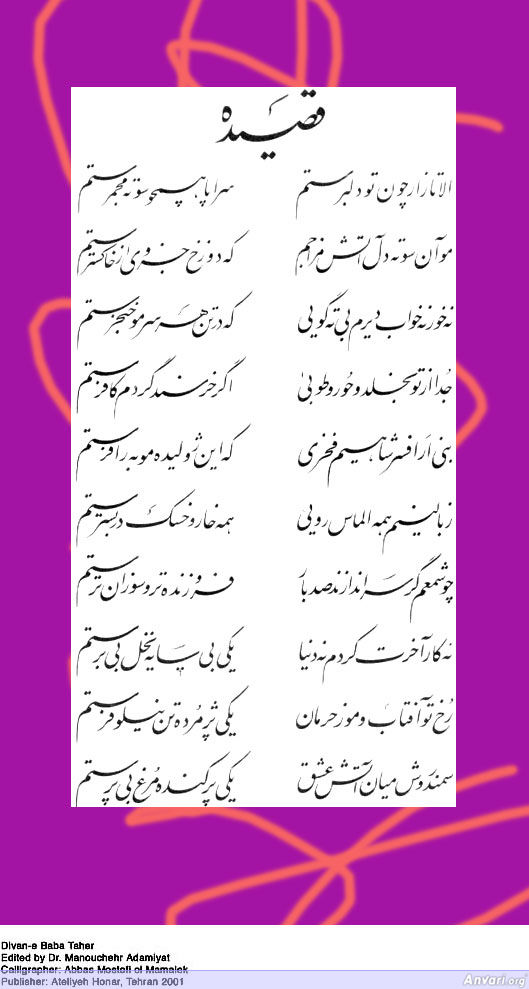 قصیده
الا تا زار چون تو دلبرستم سراپا همچو سوته مجمرستم
مو آن سوته دل آتش مزاجم که دوزخ جزوی از خاکسترستم
نه خور نه خواب دیرم بی ته گویی که در تن هر سر مو خنجرستم
جدا از تو بخلد و حور و طوبی اگر خرسند گردم کافرستم
بنی از افسر شاهیم فخری که این ژولیده مو به ز افرستم
ز بالینم همه الماس رویی همه خار و خسک در بسترستم
چو شمعم گر سر اندازند صد بار فروزنده تر و سوزان ترستم
نه کار آخرت کردم نه دنیا یکی بی سایه نخل بی برستم
رخ تو آفتاب و مو ز حرمان یکی پژمرده تن نیلوفرستم
سمندروش میان آتش عشق یکی پرکنده مرغ بی پرستم
Divan-e Baba Taher
Edited by Dr. Manouchehr Adamiyat
Calligrapher: Abbas Mostofi ol Mamalek
Publisher: Ateliyeh Honar, Tehran 2001
Anvari.org